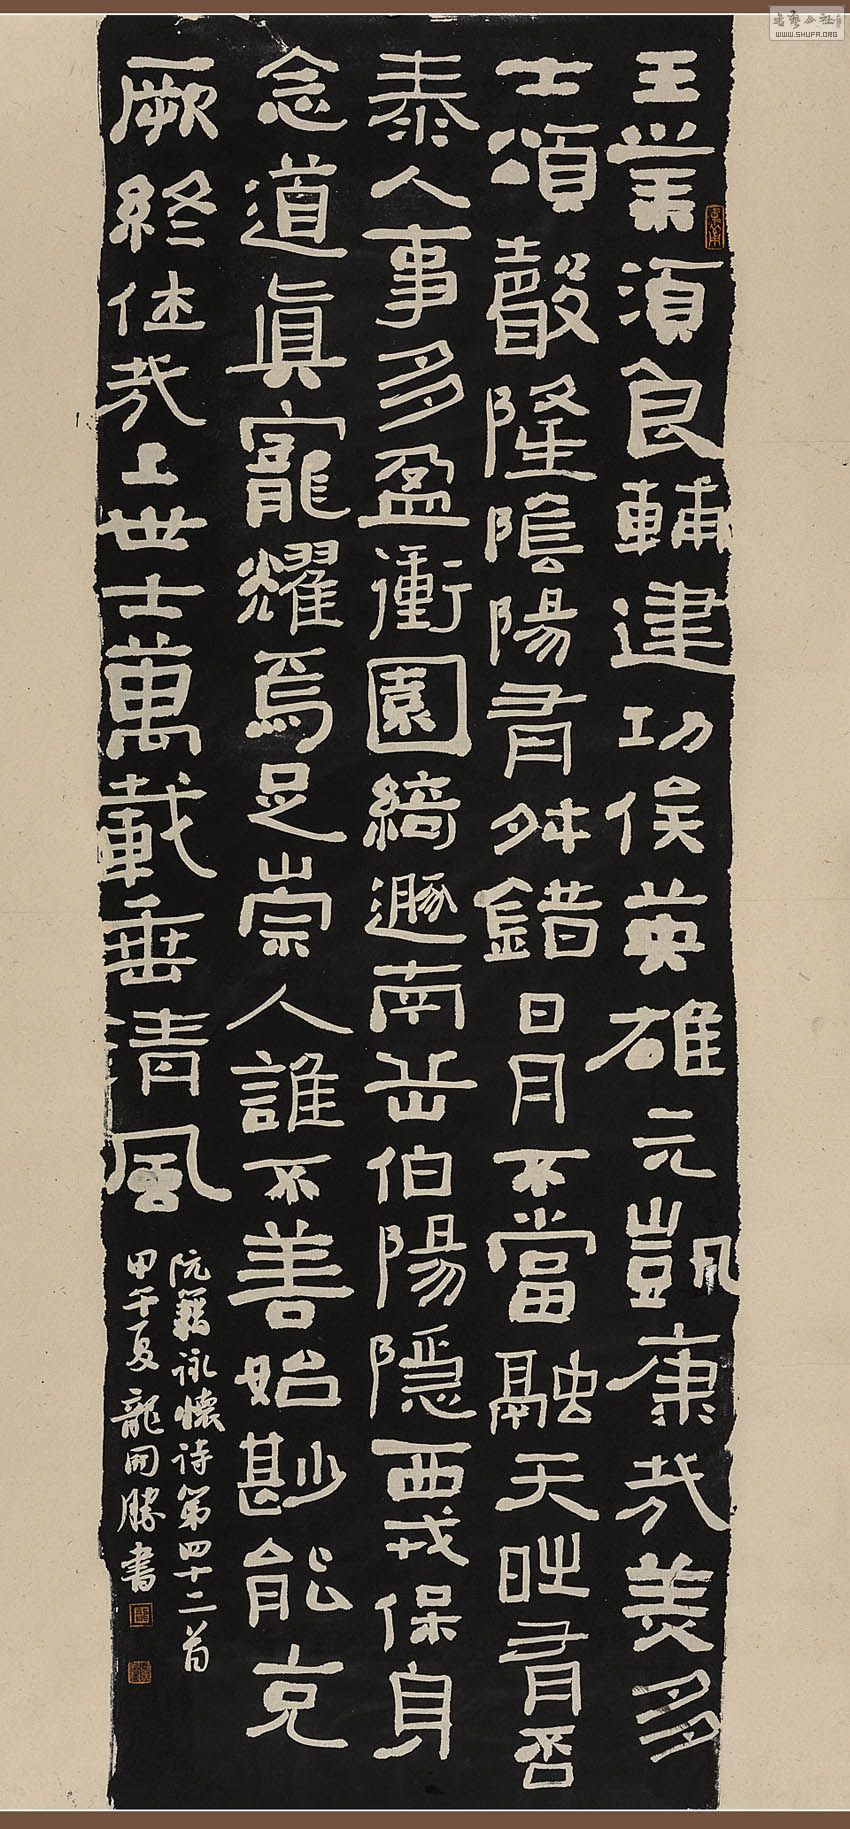 王業須良輔建功俟英雄元凱康哉美多
士頌聲隆陰陽有舛錯日月不當融天時有否
泰人事多盈衝園綺遯南岳伯陽隱西戎保身
念道真寵耀焉足崇人誰不善始尠能克
厥終休哉上世士萬載垂清風
阮籍詠懷诗第四十二首
甲午夏龍開勝書
WWW.SHUFA.ORG